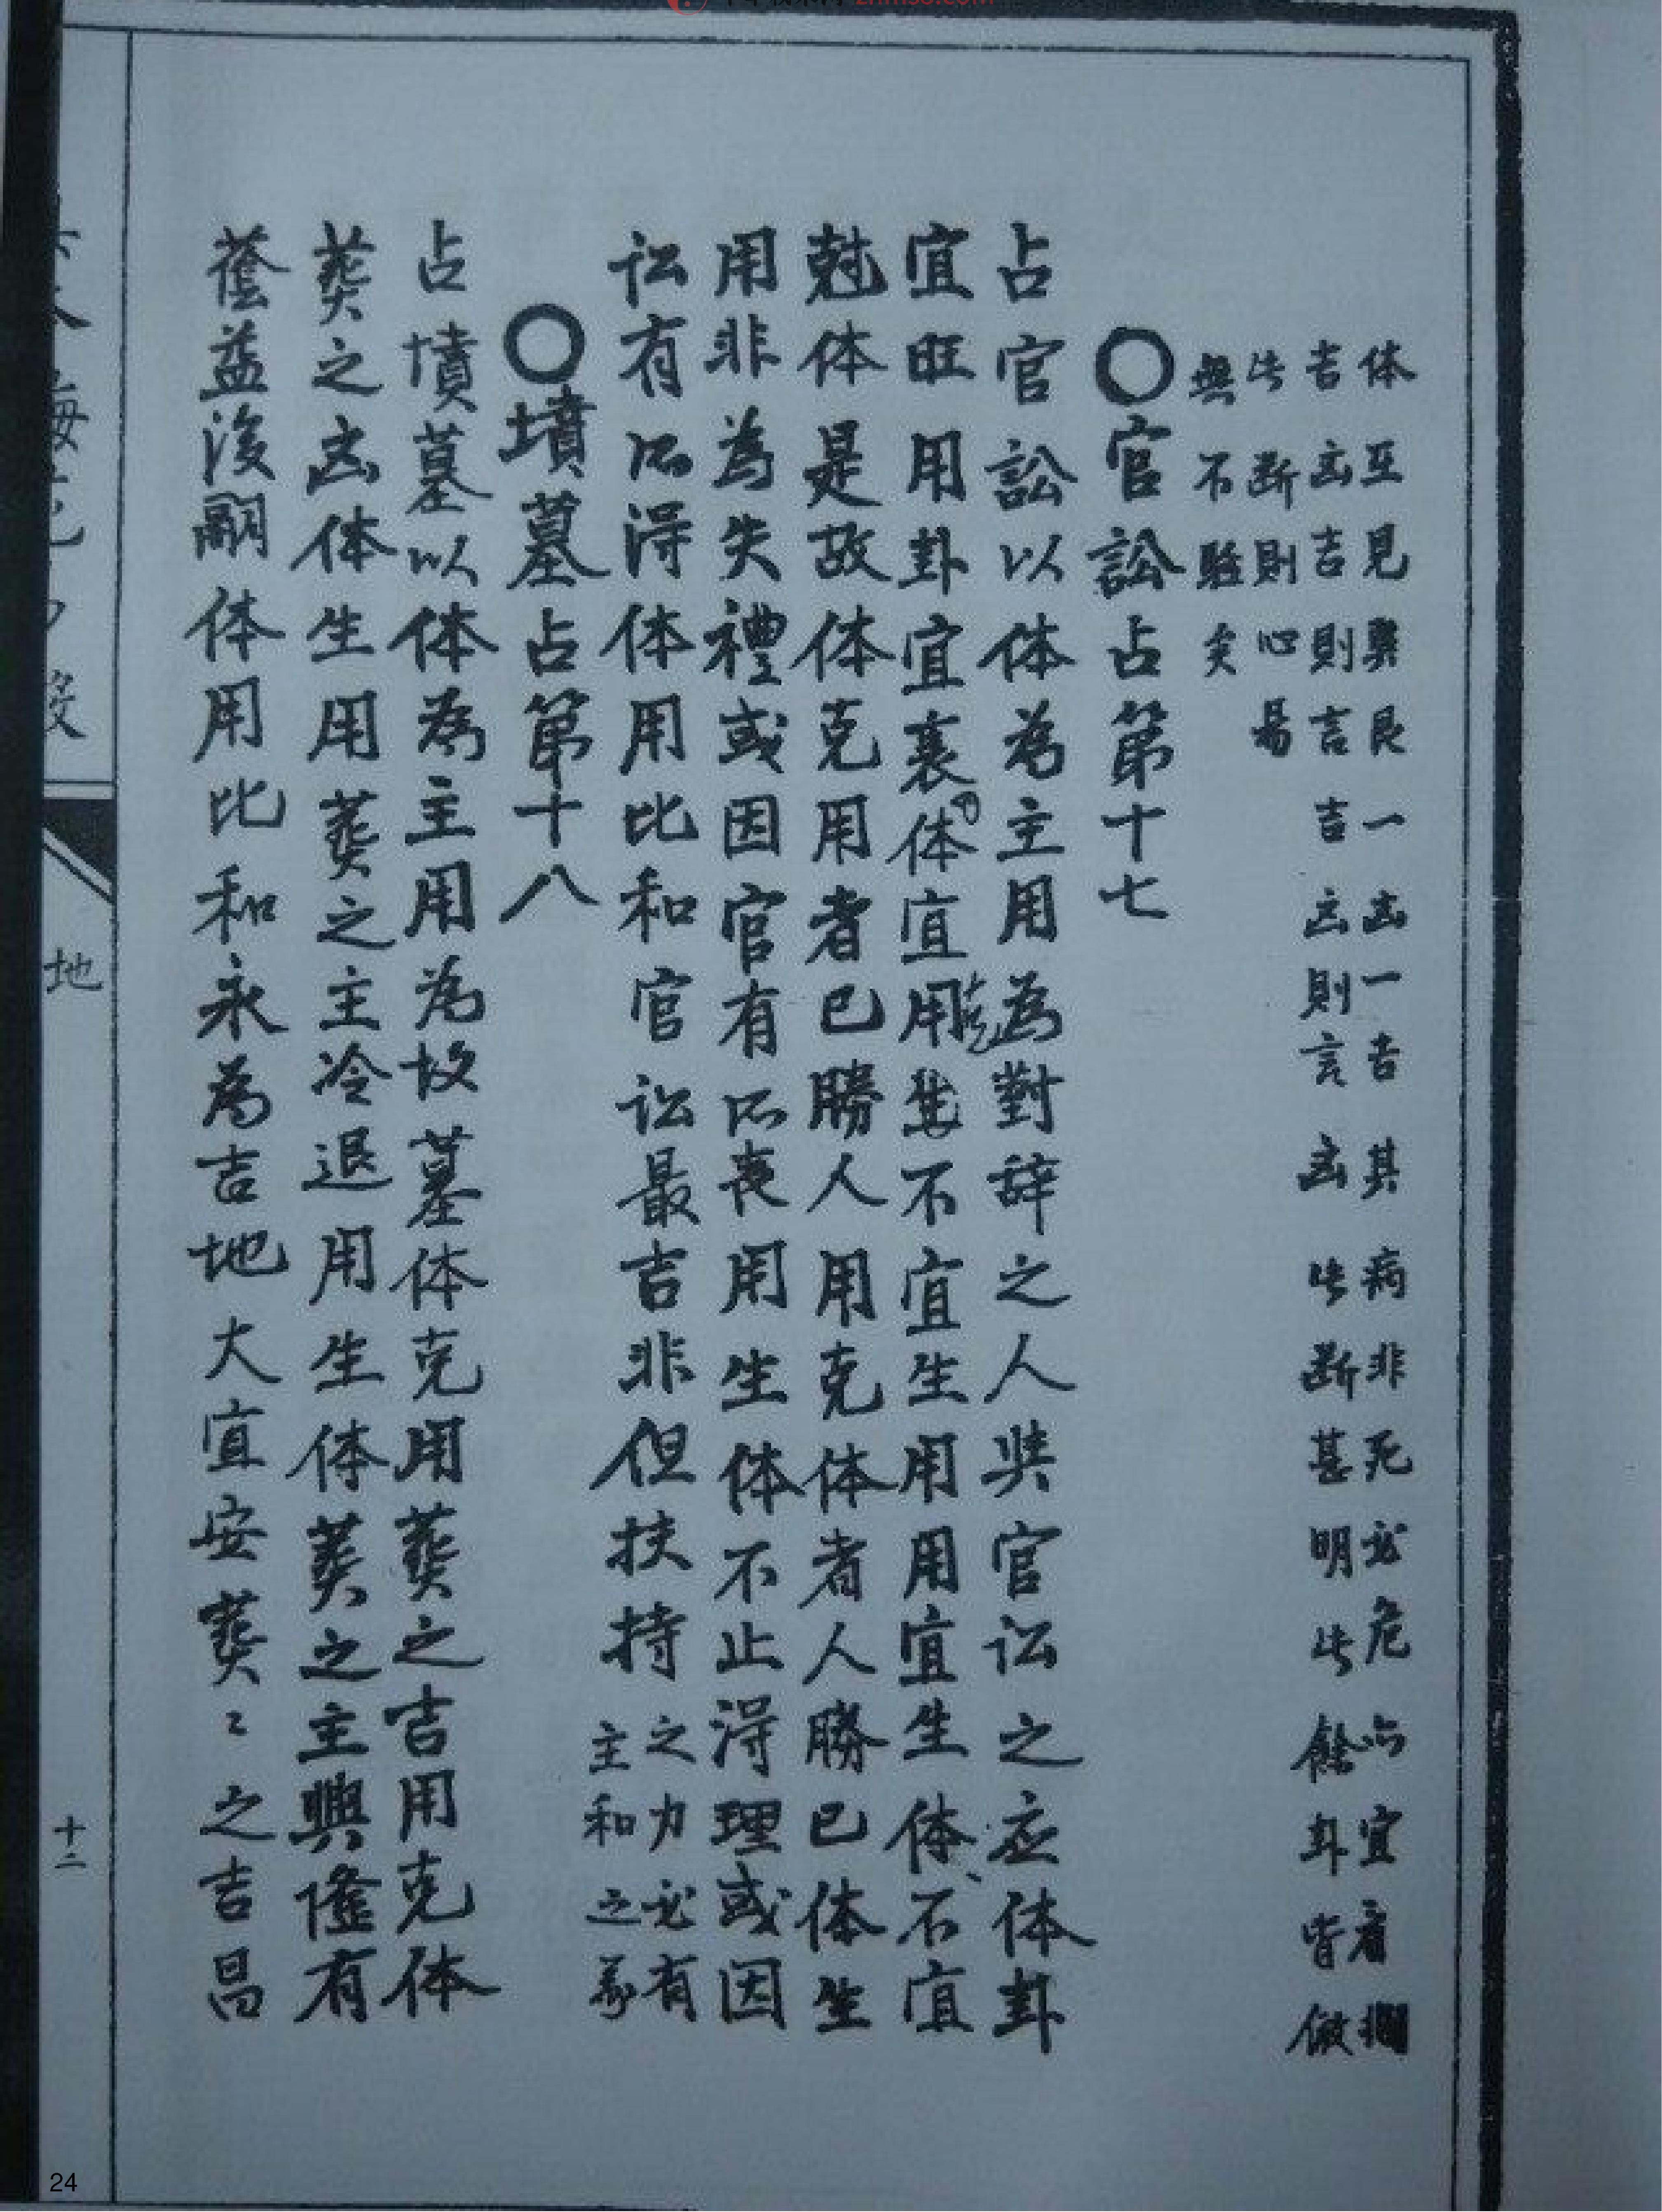 体互見巽艮一凶一吉其病非死必危六宜看
吉凶吉則吉吉凶則言凶此断甚明此餘卦皆倣
此断則心易
無不驗矣
〇官訟占第十七
占官訟以体為主用為對辞之人與官讼之应体卦
宜旺用卦宜衰体宜用生不宜生用用宜生体不宜
尅体是故体克用者已勝人用克体者人勝已体生
用非為失禮或因官有所丧用生体不止得理或因
讼有所得体用比和官讼最吉非但扶持之力必有
主和之義
〇墳墓占第十八
占墳墓以体為主用為坟墓体克用葬之吉用克体
葬之凶体生用葬之主冷退用生体葬之主興隆有
蔭益後嗣体用比和永為吉地大宜安葬〻之吉昌
地
十二
24